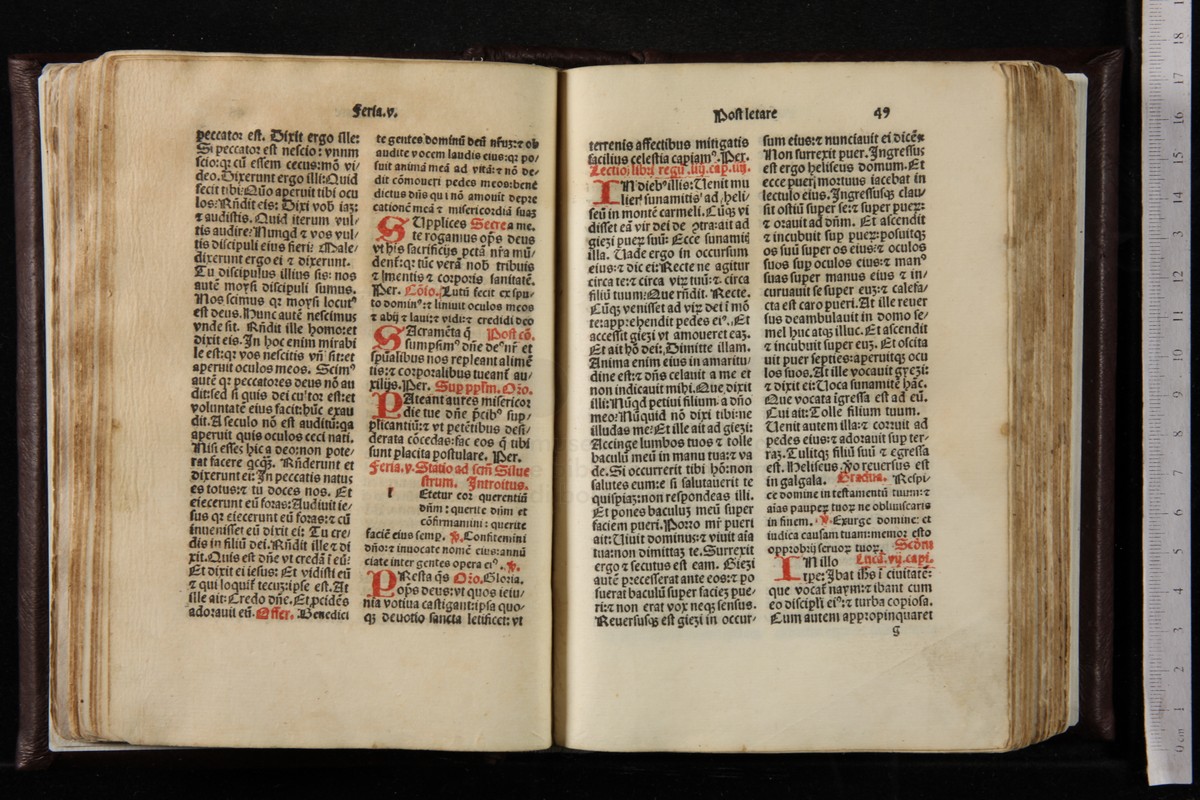 Feria.v.
peccator est. Dixit ergo ille:
Si peccator est nescio: vnum
scio: qꝛ cū essem cecus: mō vi/
deo. Dixerunt ergo illi: Quid
fecit tibi: Quō aperuit tibi ocu
los: Rn̄dit eis: Dixi vob iaz:
⁊ audistis. Quid iterum vul/
tis audire: Nunqd ⁊ vos vul/
tis discipuli eius fieri: Male/
dixerunt ergo ei ⁊ dixerunt.
Tu discipulus illius sis: nos
autē moysi discipuli sumus.
Nos scimus qꝛ moysi locutꝰ
est deus. Hunc autē nescimus
vnde sit. Rn̄dit ille homo: et
dixit eis. In hoc enim mirabi
le est: qꝛ vos nescitis vn̄ sit: et
aperuit oculos meos. Scimꝰ
autē qꝛ peccatores deus nō au
dit: sed si quis dei cultor est: et
voluntatē eius facit: hūc exau
dit. A seculo nō est auditū: qa
aperuit quis oculos ceci nati.
Nisi essez hic a deo: non pote/
rat facere qcqz. Rn̄derunt et
dixerunt ei: In peccatis natus
es totus: ⁊ tu doces nos. Et
eiecerunt eū foras: Audiuit ie/
sus qꝛ eiecerunt eū foras: ⁊ cū
inuenisset eū dixit ei: Tu cre/
dis in filiū dei. Rn̄dit ille ⁊ di
xit. Quis est dn̄e vt credā ī eū:
Et dixit ei iesus: Et vidisti eū
⁊ qui loquit tecuz: ipse est. At
ille ait: Credo dn̄e. Et pcidēs
adorauit eū. Offer. Benedici
te gentes dominū deū nr̄uz: ⁊ ob
audite vocem laudis eius: qꝛ po/
suit animā meā ad vitā: ⁊ nō de/
dit cōmoueri pedes meos: bene
dictus dn̄s qui nō amouit depre
cationē meā ⁊ misericordiā suaz
SUpplices Secre a me.
te rogamus op̄s deus
vt his sacrificijs pctā nr̄a mū/
dent: qꝛ tūc verā nob tribuis
⁊ mentis ⁊ corporis sanitatē.
Per. Cōio. Lutū fecit ex spu/
to dominꝰ: ⁊ liniuit oculos meos
⁊ abij ⁊ laui: ⁊ vidi: ⁊ credidi deo
SAcramēta q̄ Post cō.
sumpsimꝰ dn̄e deꝰ nr̄ et
spūalibus nos repleant alimē
tis: ⁊ corporalibus tueant̄ au/
xilijs. Per. Sup pplm̄. Oro.
PAteant aures misericor
die tue dn̄e p̄cibꝰ sup/
plicantiū: ⁊ vt petētibus desi/
derata cōcedas: fac eos q̄ tibi
sunt placita postulare. Per.
Feria.v. Statio ad scm̄ Silue
strum. Introitus.
l Etetur cor querentiū
dn̄m: querite dn̄m et
cōfirmamini: querite
faciē eius semp. ℣. Confitemini
dn̄o: ⁊ inuocate nomē eius: annū
ciate inter gentes opera eiꝰ. ℣.
PResta q̄s Oro. Gloria.
op̄s deus: vt quos ieiu/
nia votiua castigant: ipsa quo/
qz deuotio sancta letificet: vt
Post letare 49
terrenis affectibus mitigatis
facilius celestia capiamꝰ. Per.
Lectio libri regū .iiij. cap. iiij.
IN diebꝰ illis: Uenit mu
lier sunamitis ad heli/
seū in montē carmeli. Cūqz vi
disset eā vir dei de ꝯtra: ait ad
giezi pueꝝ suū: Ecce sunamis
illa. Uade ergo in occursum
eius: ⁊ dic ei: Recte ne agitur
circa te: ⁊ circa virꝝ tuū: ⁊ circa
filiū tuum: Que rn̄dit. Recte.
Cūqz venisset ad virꝝ dei ī mō
te: apprehendit pedes eiꝰ. Et
accessit giezi vt amoueret eaz.
Et ait hō dei: Dimitte illam.
Anima enim eius in amaritu/
dine est: ⁊ dn̄s celauit a me et
non indicauit mihi. Que dixit
illi: Nūqd petiui filium a dn̄o
meo: Nūquid nō dixi tibi: ne
illudas me: Et ille ait ad giezi:
Accinge lumbos tuos ⁊ tolle
baculū meū in manu tua: ⁊ va
de. Si occurrerit tibi hō: non
salutes eum: ⁊ si salutauerit te
quispiaz: non respondeas illi.
Et pones baculuz meū super
faciem pueri. Porro mr̄ pueri
ait: Uiuit dominus: ⁊ viuit aīa
tua: non dimittaz te. Surrexit
ergo ⁊ secutus est eam. Giezi
autē p̄cesserat ante eos: ⁊ po
suerat baculū super faciez pue/
ri: ⁊ non erat vox neqz sensus.
Reuersusqz est giezi in occur/
sum eius: ⁊ nunciauit ei dicēs
Non surrexit puer. Ingressus
est ergo heliseus domum. Et
ecce puer mortuus iacebat in
lectulo eius. Ingressusqz clau/
sit ostiū super se: ⁊ super pueꝝ:
⁊ orauit ad dn̄m. Et ascendit
⁊ incubuit sup pueꝝ: posuitqz
os suū super os eius: ⁊ oculos
suos sup oculos eius: ⁊ manꝰ
suas super manus eius ⁊ in/
curuauit se super euz: ⁊ calefa/
cta est caro pueri. At ille reuer
sus deambulauit in domo se/
mel huc atqz illuc. Et ascendit
⁊ incubuit super euz. Et oscita
uit puer septies: aperuitqz ocu
los suos. At ille vocauit gyezi:
⁊ dixit ei: Uoca sunamitē hāc.
Que vocata īgressa est ad eū.
Cui ait: Tolle filium tuum.
Uenit autem illa: ⁊ corruit ad
pedes eius: ⁊ adorauit sup ter/
raz. Tulitqz filiū suū ⁊ egressa
est. Heliseus ꝟo reuersus est
in galgala. Gradua. Respi/
ce domine in testamentū tuum: ⁊
aīas paupeꝝ tuoꝝ ne obliuiscaris
in finem. ℣. Exurge domine: et
iudica causam tuam: memor esto
opprobrij seruoꝝ tuoꝝ. Scdm̄
IN illo Lucā. vij. capi.
tpe: Ibat ihs ī ciuitatē:
que vocat̄ naym: ⁊ ibant cum
eo discipli eiꝰ: ⁊ turba copiosa.
Cum autem appropinquaret
g
18
17
16
15
14
13
12
11
10
9
8
7
6
5
4
3
2
1
0 cm